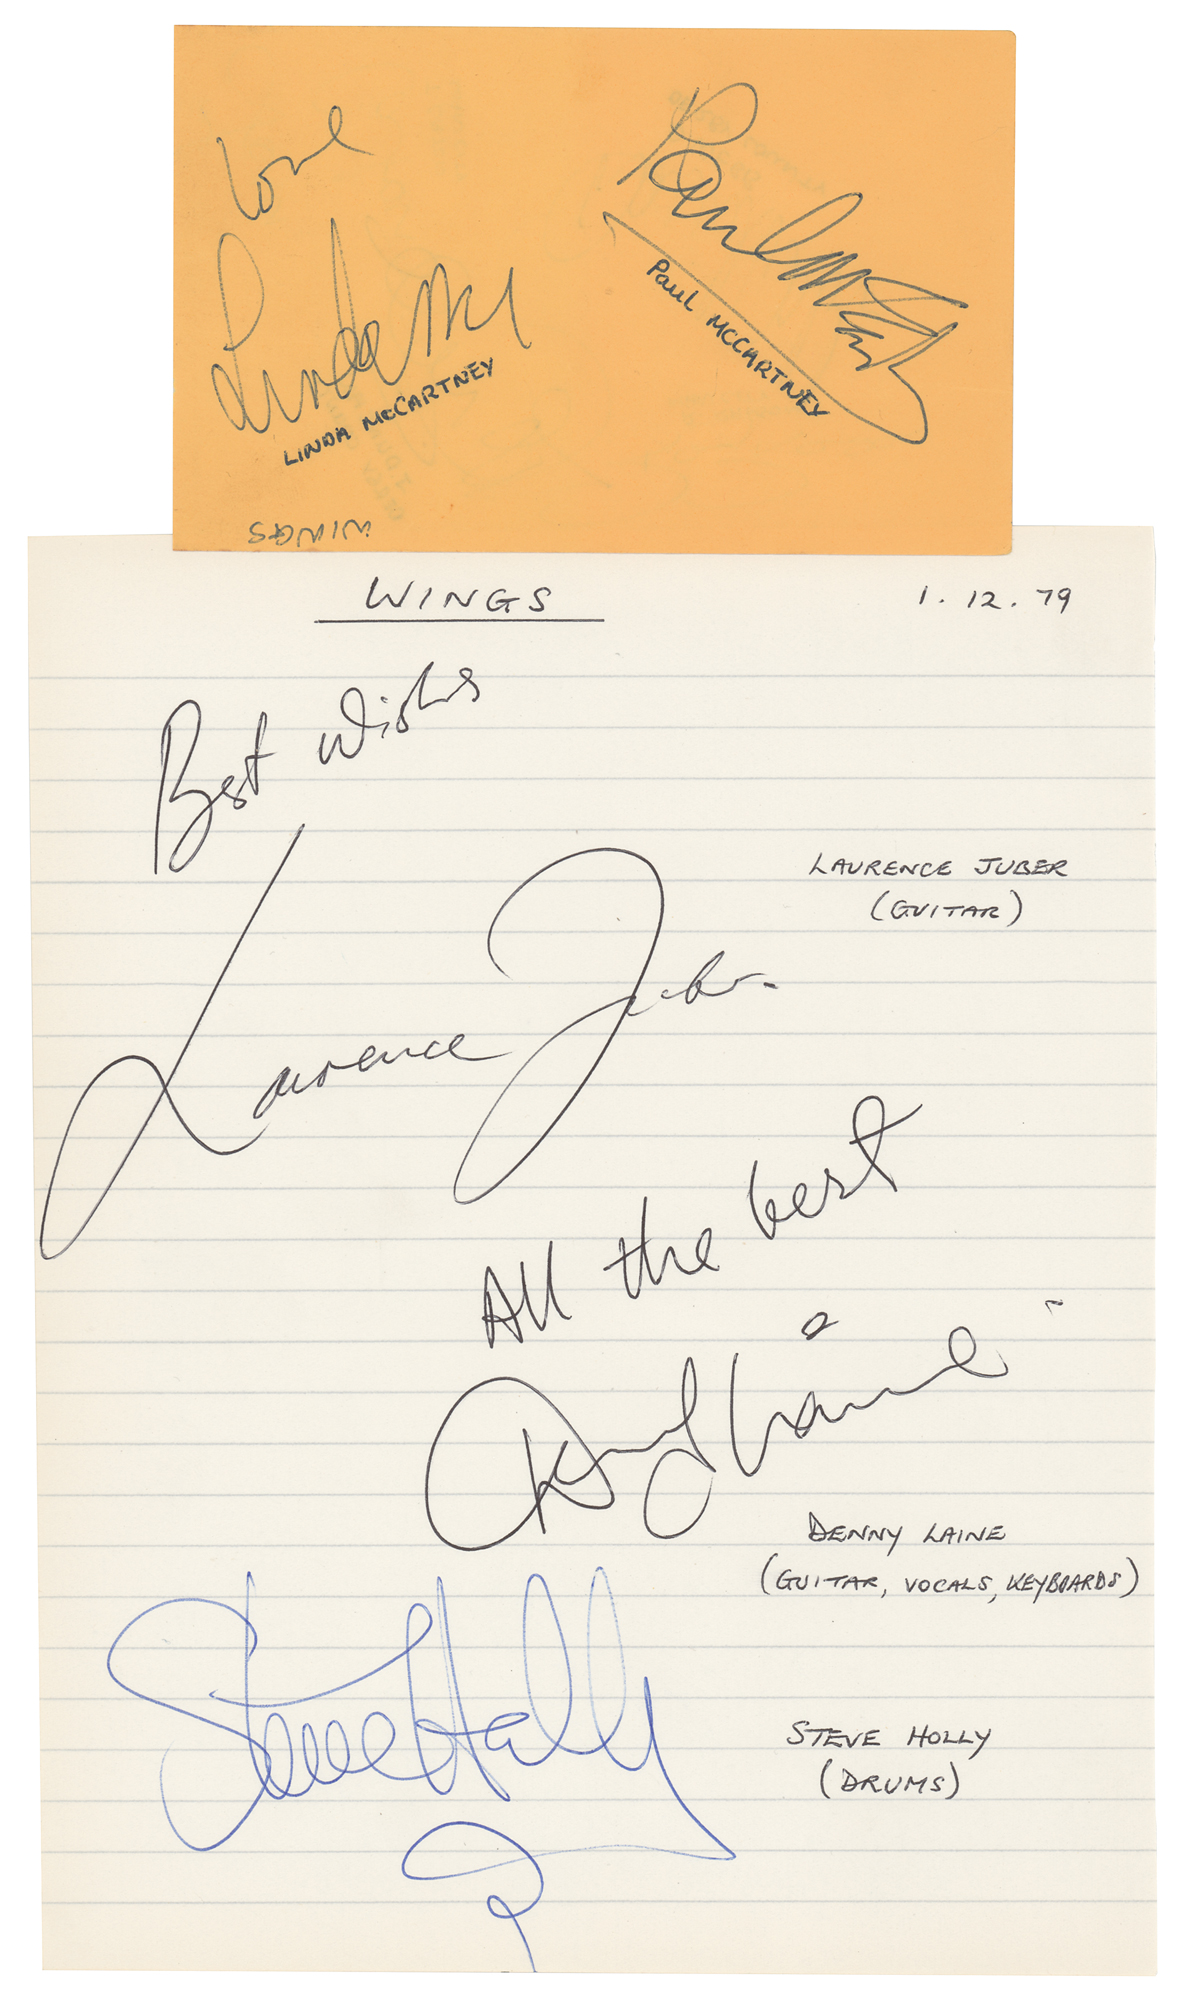 Love
Linda Mc
LINDA McCARTNEY
Paul McCartney
PAUL MCCARTNEY
WINGS
WINGS
1.12.79
Best wishes
Laurence Juber.
LAURENCE JUBER
(GUITAR)
All the best
Denny Laine
DENNY LAINE
(GUITAR, VOCALS, KEYBOARDS)
Steve Holly
STEVE HOLLY
(DRUMS)